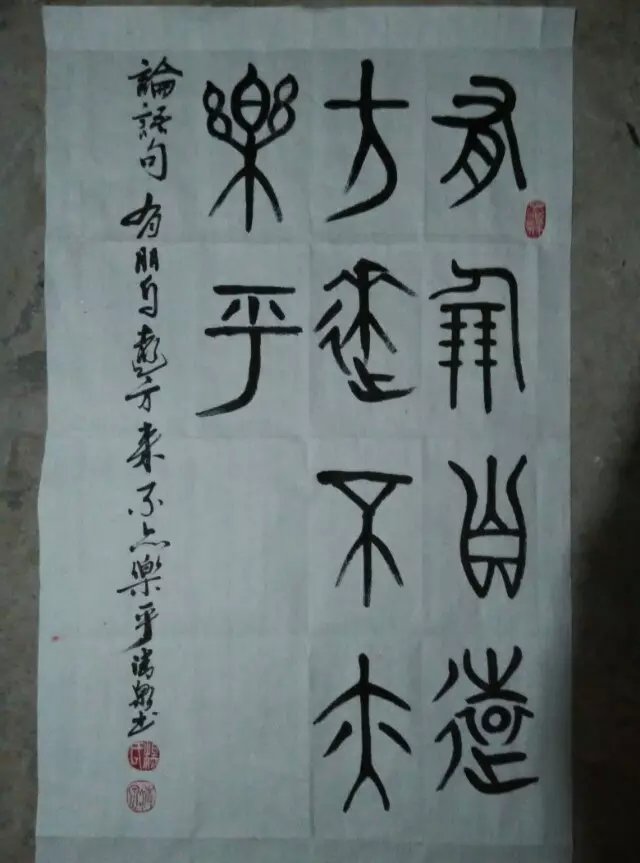 有朋自遠
方來不亦
樂乎
論語句 有朋自遠方來不亦樂乎 書